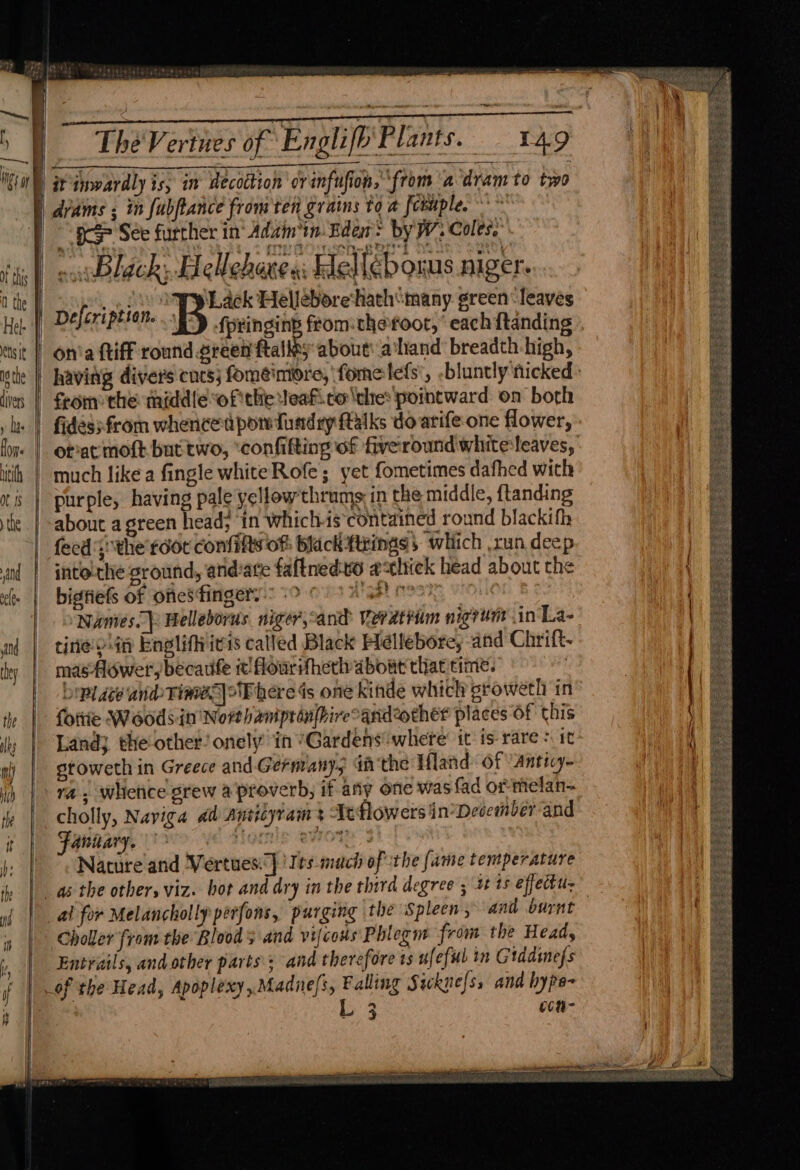 The Vertues of Engliſh Plants. 149
it inwardly is, in decoction or infuſion, from a dram to two
drams ; in ſubſtance from ten grains to a ſcruple.
☞ See further in Adam in Eden : by W. Coles.
Black Hellebore. Helleborus niger.
Deſcription. BLack Hellebore hath many green leaves
ſpringing from the root, each ſtanding
on a ſtiff round green ſtalk, about a hand breadth high,
having divers cuts, ſome more, ſome leſs, bluntly nicked
from the middle of the leaf to the pointward on both
ſides, from whence upon ſundry ſtalks do ariſe one flower,
or at moſt but two, conſiſting of five round white leaves,
much like a ſingle white Roſe ; yet ſometimes daſhed with
purple, having pale yellow thrums in the middle, ſtanding
about a green head, in which is contained round blackiſh
ſeed ; the root conſiſts of black ſtrings, which run deep
into the ground, and are faſtned to a thick head about the
bigneſs of ones finger.
Names.] Helleborus niger, and Veratrum nigrum in La-
tine ; in Engliſh it is called Black Hellebore, and Chriſt-
mas-flower, becauſe it flouriſheth about that time.
Place and Time.] There is one kinde which groweth in
ſome Woods in Northamptonſhire and other places of this
Land; the other onely in Gardens where it is rare : it
groweth in Greece and Germany, in the Iſland of Anticy-
ra ; whence grew a proverb, if any one was ſad or melan-
cholly, Naviga ad Anticyram : It flowers in December and
January.
Nature and Vertues.] Its much of the ſame temperature
as the other, viz. hot and dry in the third degree ; it is effectu-
al for Melancholly perſons, purging the Spleen, and burnt
Choller from the Blood ; and viſcous Phlegm from the Head,
Entrails, and other parts ; and therefore is uſeful in Giddineſs
of the Head, Apoplexy, Madneſs, Falling Sickneſs, and hypo-
L 3 con-